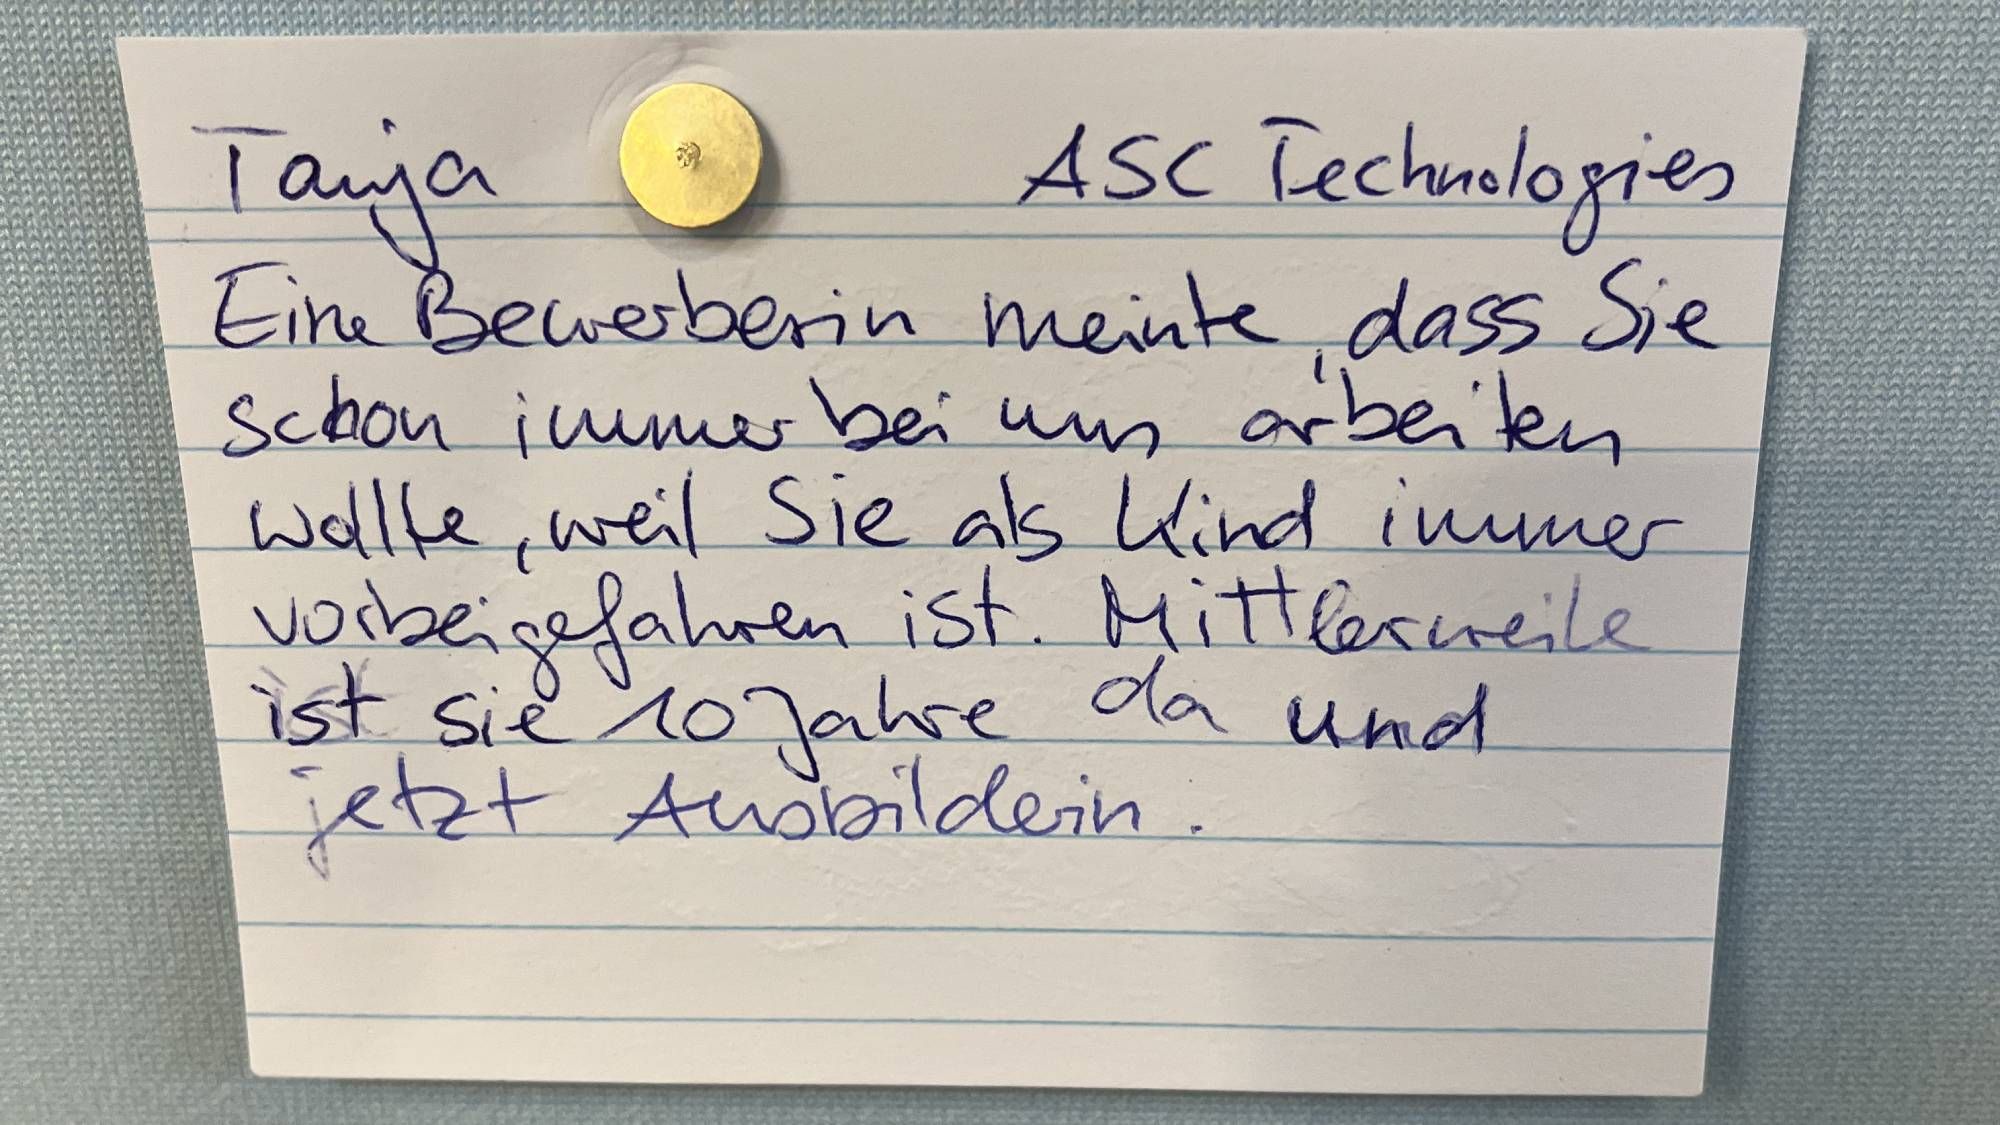 Tanja ASC Technologies
Eine Bewerberin meinte, dass Sie
schon immer bei uns arbeiten
wollte, weil Sie als Kind immer
vorbeigefahren ist. Mittlerweile
ist sie 10 Jahre da und
jetzt Ausbilderin.